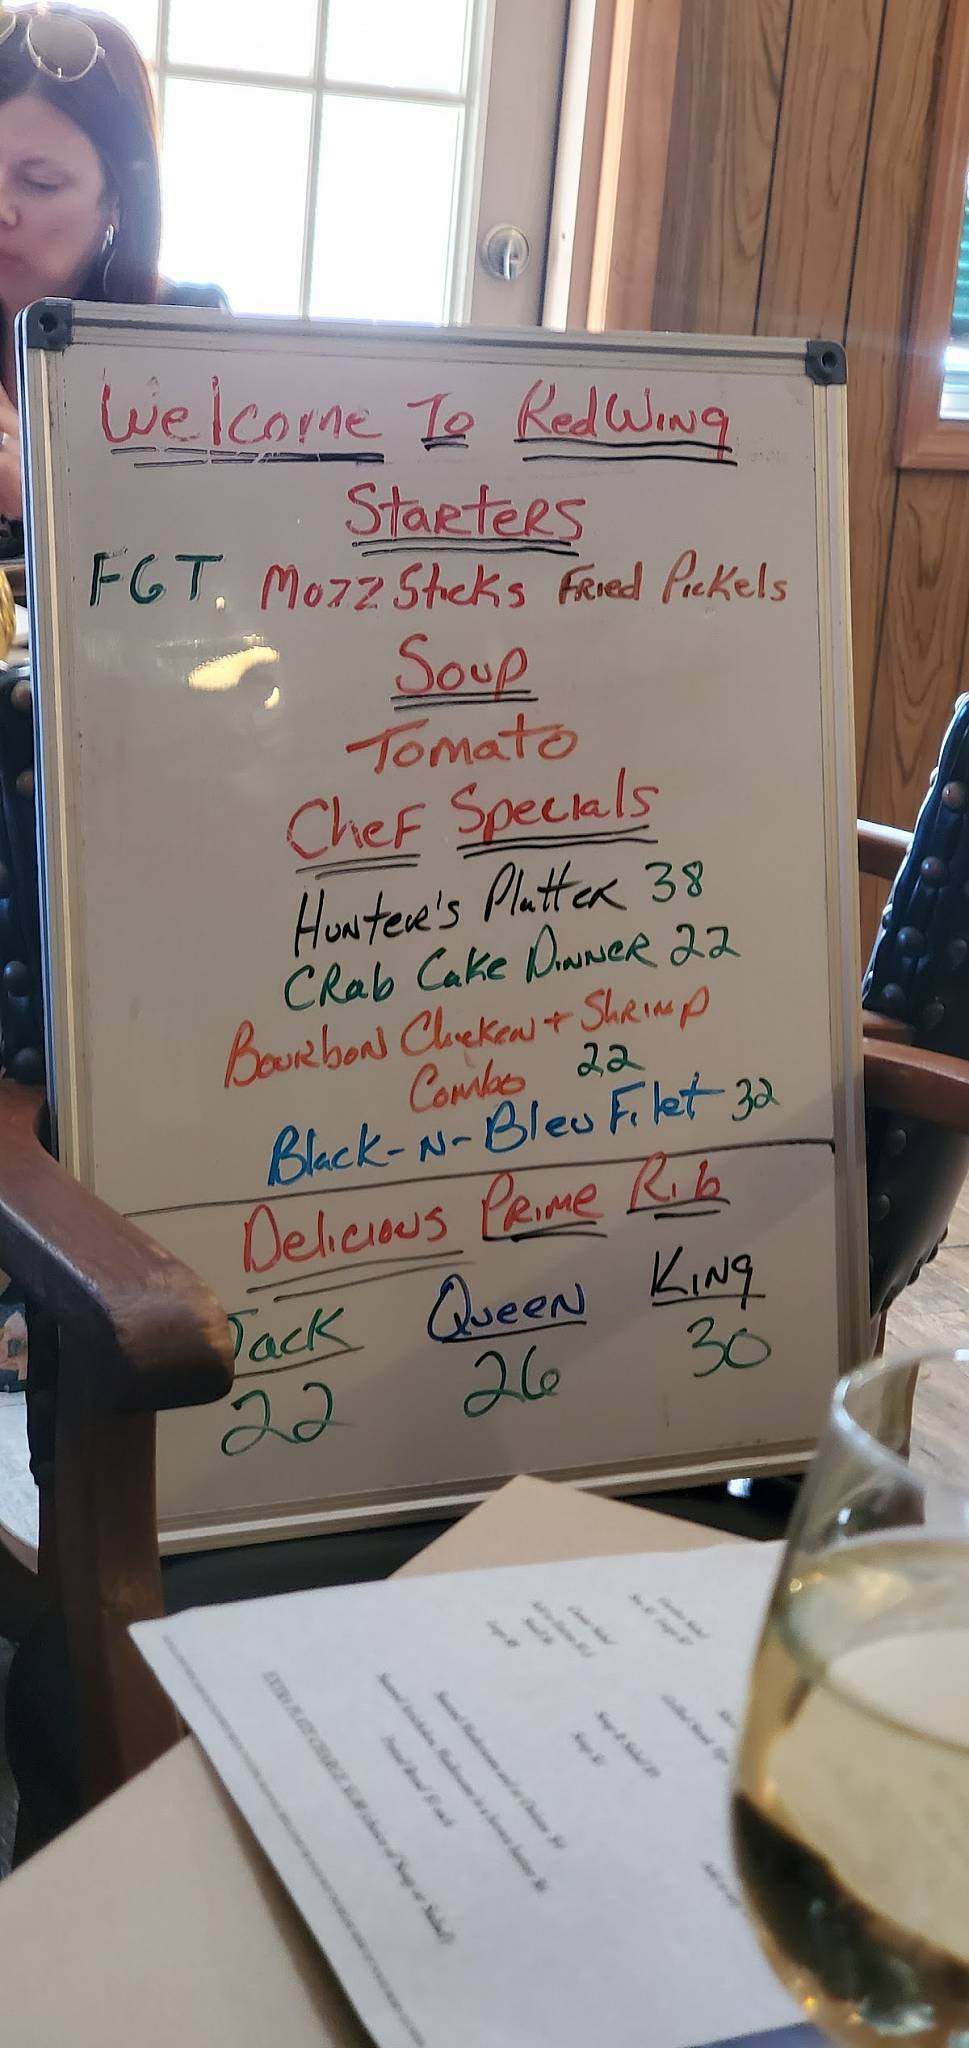 Welcome To RedWing
Starters
FGT. Mozz Sticks Fried Pickels
Soup
Tomato
Chef Specials
Hunter's Platter 38
Crab Cake Dinner 22
Bourbon Chicken + Shrimp
Combo 22
Black-N-Bleu Filet 32
Delicious Prime Rib
Jack Queen King
22 26 30
EXTRA PLATE CHARGE